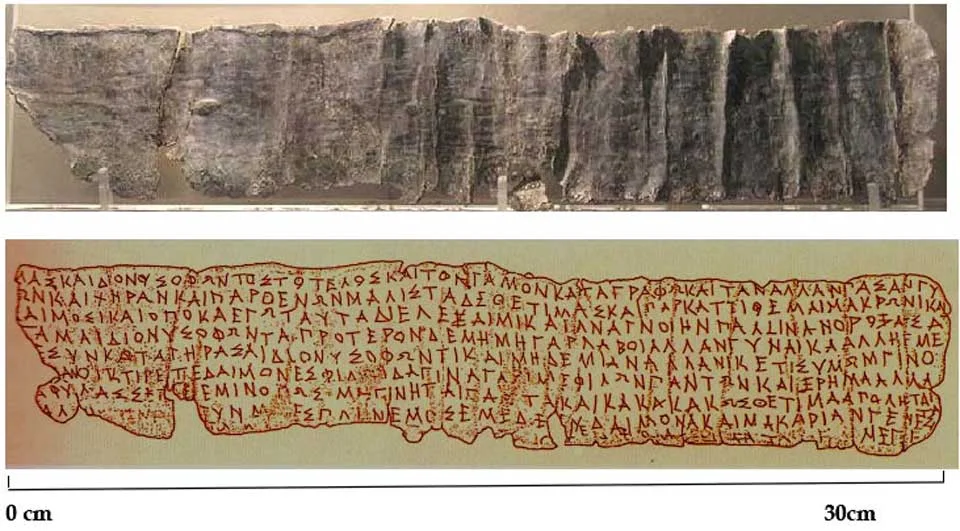 ΜΑΣΚΑΙΔΙΟΝΥΣΟΦΩΝΤΟΣΤΟΤΕΛΟΣΚΑΙΤΟΝΓΑΜΟΝΚΑΤΑΓΡΑΦΩΚΑΙΤΑΝΑΛΛΑΝΠΑΣΑΝΓΥ
ΩΝΚΑΙΧΗΡΑΝΚΑΙΠΑΡΘΕΝΩΝΜΑΛΙΣΤΑΔΕΘΕΤΙΜΑΣΚΑΙΠΑΡΚΑΤΤΙΘΕΜΑΙΜΑΚΡΩΝΙΚΑΙ
ΔΑΙΜΟΣΙΚΑΙΟΠΟΚΑΕΓΩΤΑΥΤΑΔΙΕΛΕΞΑΙΜΙΚΑΙΑΝΑΓΝΟΙΗΝΠΑΛΙΝΑΝΟΡΟΞΑΣΑ
ΓΑΜΑΙΔΙΟΝΥΣΟΦΩΝΤΑΠΡΟΤΕΡΟΝΔΕΜΗΜΗΓΑΡΛΑΒΟΙΑΛΛΑΝΓΥΝΑΙΚΑΑΛΛΗΕΜΕ
ΕΣΥΝΚΑΤΑΓΗΡΑΣΑΙΔΙΟΝΥΣΟΦΩΝΤΙΚΑΙΜΗΔΕΜΙΑΝΑΛΛΑΝΙΚΕΤΙΣΥΜΩΜΓΙΝΟ
ΑΝΟΙΚΤΙΡΕΤΕΔΑΙΜΟΝΕΣΦΙΛ ΔΑΓΙΝΑΓΑΡΙΜΕΦΙΛΩΝΠΑΝΤΩΝΚΑΙΕΡΗΜΑΑΛΛΑ
ΦΥΛΑΣΣΕΤΕΕΜΙΝΟΠΩΣΜΗΓΙΝΗΤΑΙΤΑΥΤΑΚΑΙΚΑΚΑΚΑΚΩΣΘΕΤΙΜΑΑΠΟΛΗΤΑΙ
ΑΛ ΥΝΜ ΕΣΠΛΗΝΕΜΟΣΕΜΕΔΕ ΔΑΙΜΟΝΑΚΑΙΜΑΚΑΡΙΑΝΓΕΝΕΣ
ΜΕΓΕ
0 cm 30cm